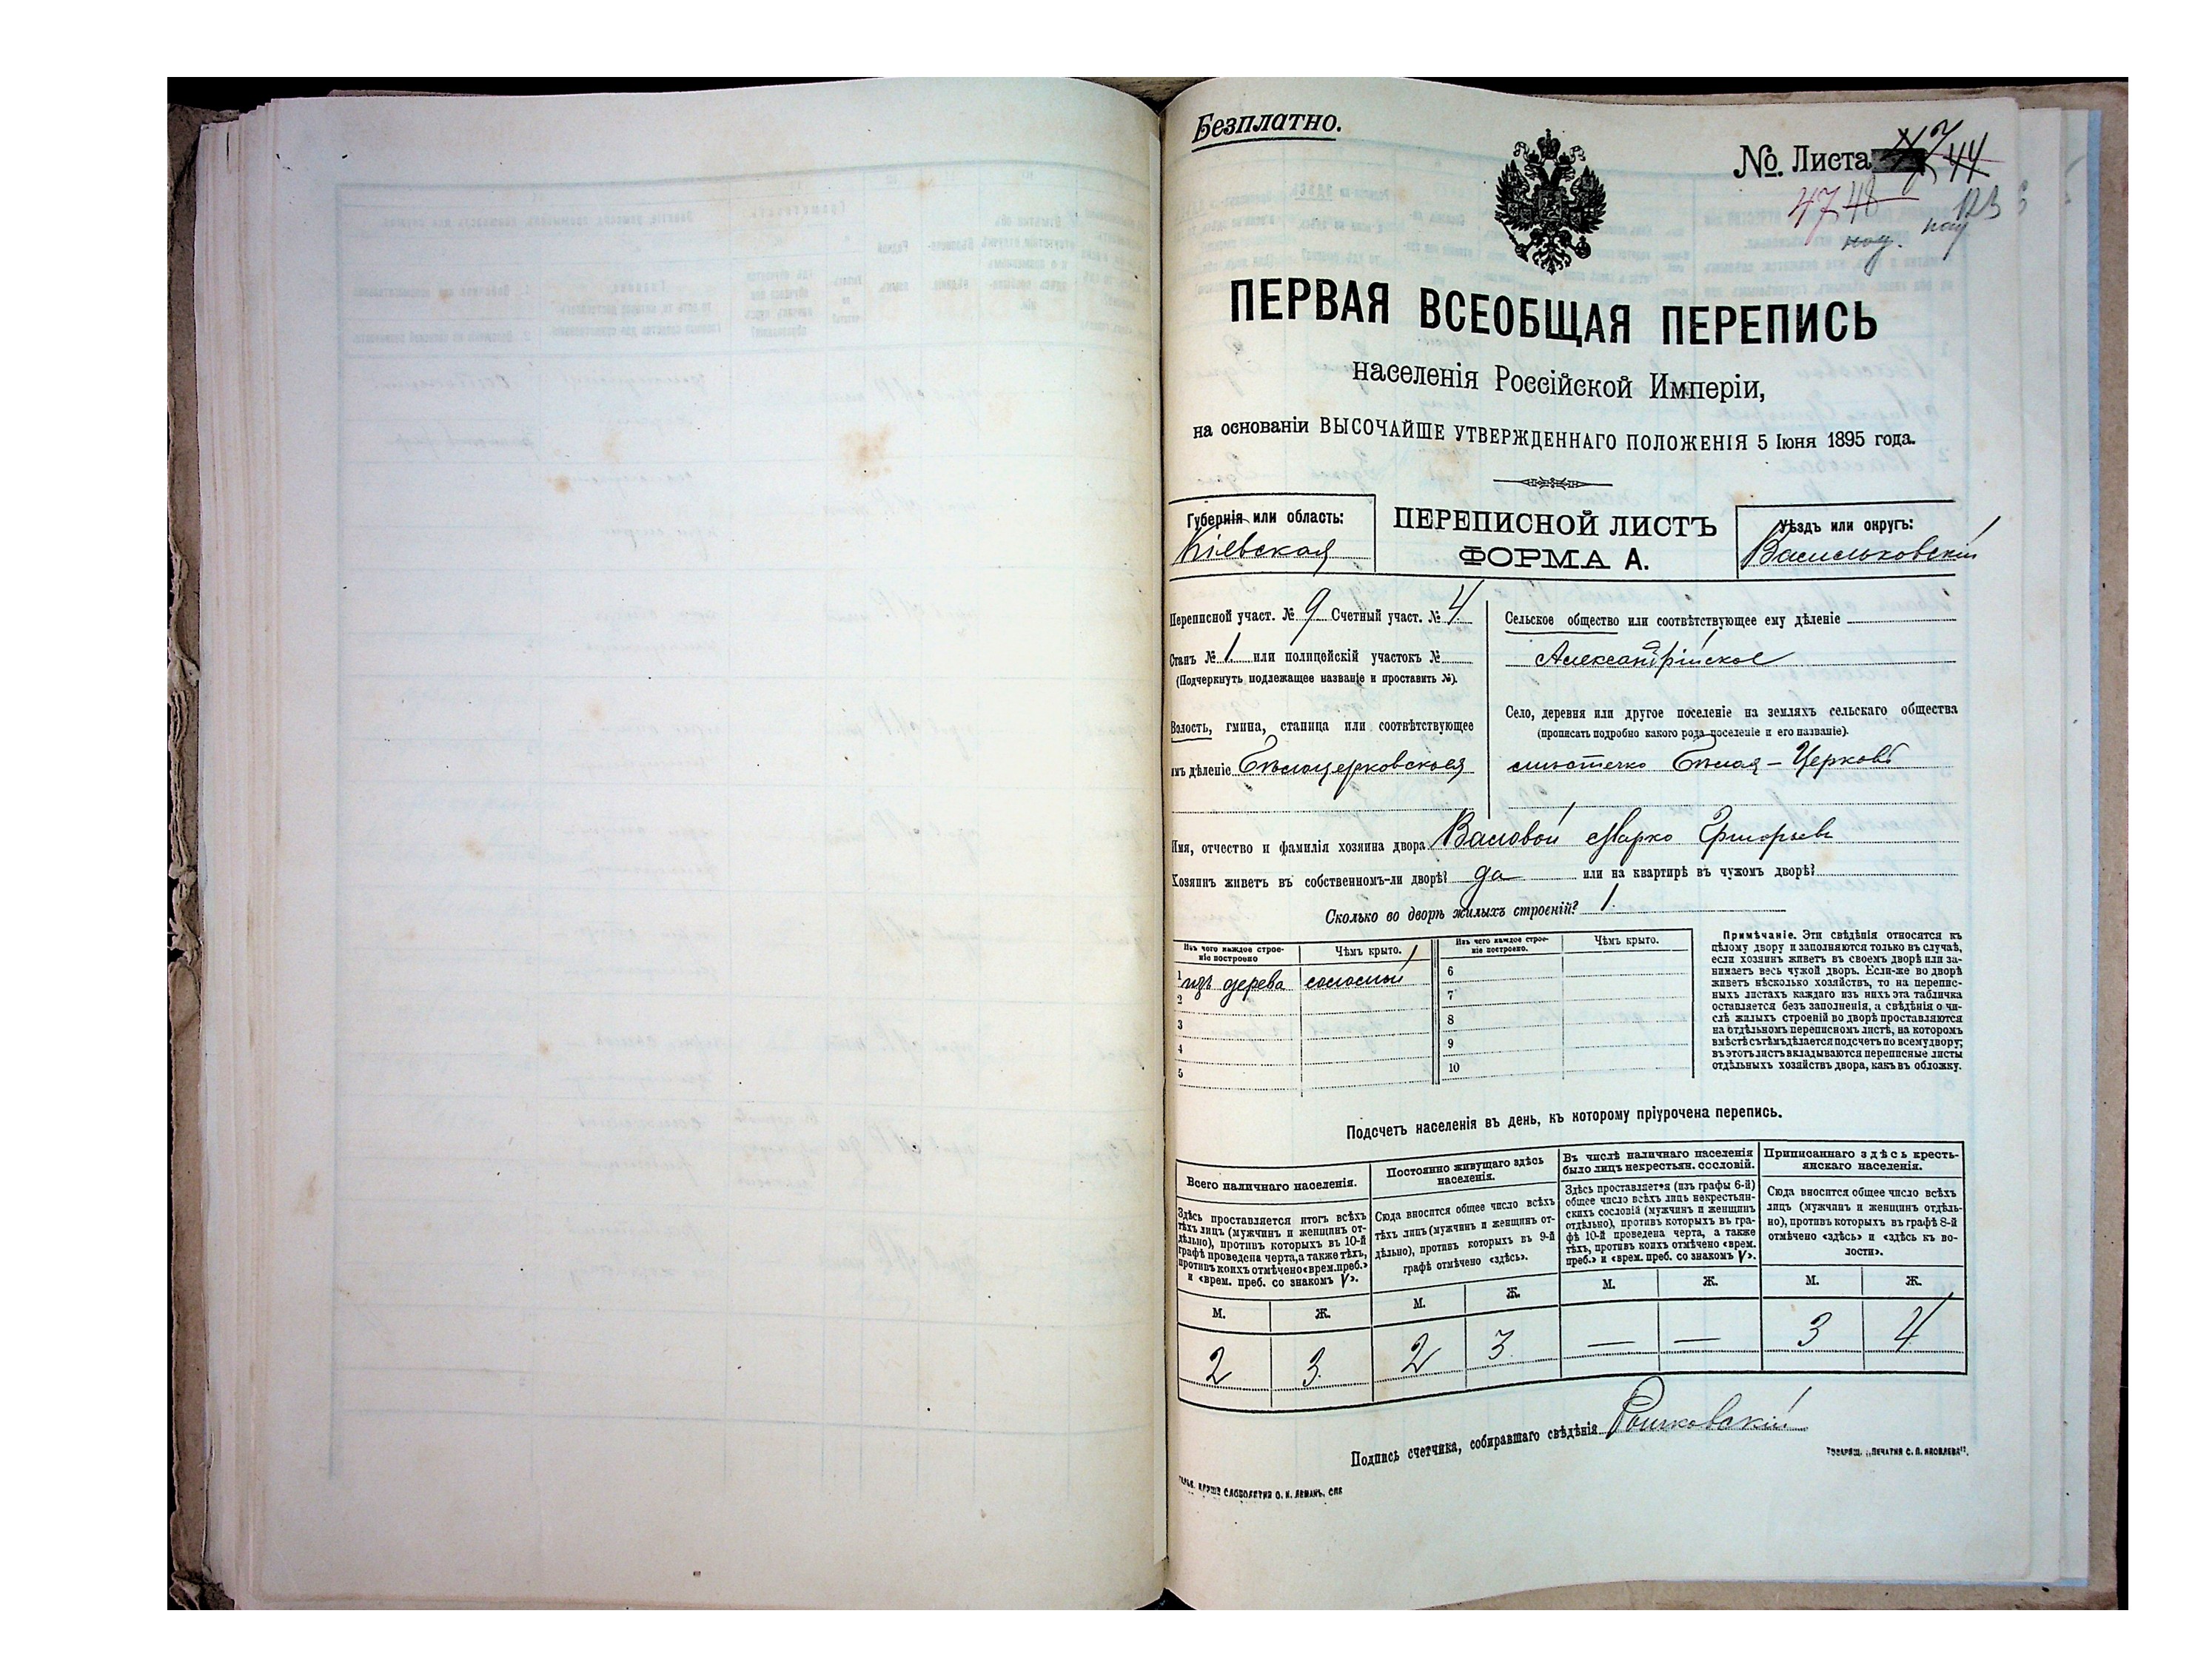 Безплатно.
№. Листа 44
47 48 123
под. под
ПЕРВАЯ ВСЕОБЩАЯ ПЕРЕПИСЬ
населенія Россійской Имперіи,
на основаніи ВЫСОЧАЙШЕ УТВЕРЖДЕННАГО ПОЛОЖЕНІЯ 5 Іюня 1895 года.
Губернія или область:
Кіевская
ПЕРЕПИСНОЙ ЛИСТЪ
ФОРМА А.
Уѣздъ или округъ:
Васильковскій
Переписной участ. № 9 Счетный участ. № 4
Станъ № 1 или полицейскій участокъ №
(Подчеркнуть подлежащее названіе и проставить №).
Волость, гмина, станица или соотвѣтствующее
имъ дѣленіе Бѣлоцерковская
Сельское общество или соотвѣтствующее ему дѣленіе
Александрійское
Село, деревня или другое поселеніе на земляхъ сельскаго общества
(прописать подробно какого рода поселеніе и его названіе).
мѣстечко Бѣлая-Церковь
Имя, отчество и фамилія хозяина двора Валовой Марко Григорьевъ
Хозяинъ живетъ въ собственномъ-ли дворѣ? да или на квартирѣ въ чужомъ дворѣ?
Сколько во дворѣ жилыхъ строеній? 1.
Изъ чего каждое строе-
ніе построено
Чѣмъ крыто.
1 изъ дерева соломой
2
3
4
5
Изъ чего каждое строе-
ніе построено.
Чѣмъ крыто.
6
7
8
9
10
Примѣчаніе. Эти свѣдѣнія относятся къ
цѣлому двору и заполняются только въ случаѣ,
если хозяинъ живетъ въ своемъ дворѣ или за-
нимаетъ весь чужой дворъ. Если-же во дворѣ
живетъ нѣсколько хозяйствъ, то на перепис-
ныхъ листахъ каждаго изъ нихъ эта табличка
оставляется безъ заполненія, а свѣдѣнія о чи-
слѣ жилыхъ строеній во дворѣ проставляются
на отдѣльномъ переписномъ листѣ, на которомъ
вмѣстѣ съ тѣмъ дѣлается подсчетъ по всему двору;
въ этотъ листъ вкладываются переписные листы
отдѣльныхъ хозяйствъ двора, какъ въ обложку.
Подсчетъ населенія въ день, къ которому пріурочена перепись.
Всего наличнаго населенія.
Здѣсь проставляется итогъ всѣхъ
тѣхъ лицъ (мужчинъ и женщинъ от-
дѣльно), противъ которыхъ въ 10-й
графѣ проведена черта, а также тѣхъ,
противъ коихъ отмѣчено «врем. преб.»
и «врем. преб. со знакомъ V».
М. Ж.
2 3.
Постоянно живущаго здѣсь
населенія.
Сюда вносится общее число всѣхъ
тѣхъ лицъ (мужчинъ и женщинъ от-
дѣльно), противъ которыхъ въ 9-й
графѣ отмѣчено «здѣсь».
М. Ж.
2 3.
Въ числѣ наличнаго населенія
было лицъ некрестьян. сословій.
Здѣсь проставляется (изъ графы 6-й)
общее число всѣхъ лицъ некрестьян-
скихъ сословій (мужчинъ и женщинъ
отдѣльно), противъ которыхъ въ гра-
фѣ 10-й проведена черта, а также
тѣхъ, противъ коихъ отмѣчено «врем.
преб.» и «врем. преб. со знакомъ V».
М. Ж.
— —
Приписаннаго здѣсь кресть-
янскаго населенія.
Сюда вносится общее число всѣхъ
лицъ (мужчинъ и женщинъ отдѣль-
но), противъ которыхъ въ графѣ 8-й
отмѣчено «здѣсь» и «здѣсь къ во-
лости».
М. Ж.
3 4
Подпись счетчика, собиравшаго свѣдѣнія
ТОВАРИЩ. „ПЕЧАТНЯ С. П. ЯКОВЛЕВА".
СЛОВОЛИТНЯ О. И. ЛЕМАНЪ, СПБ